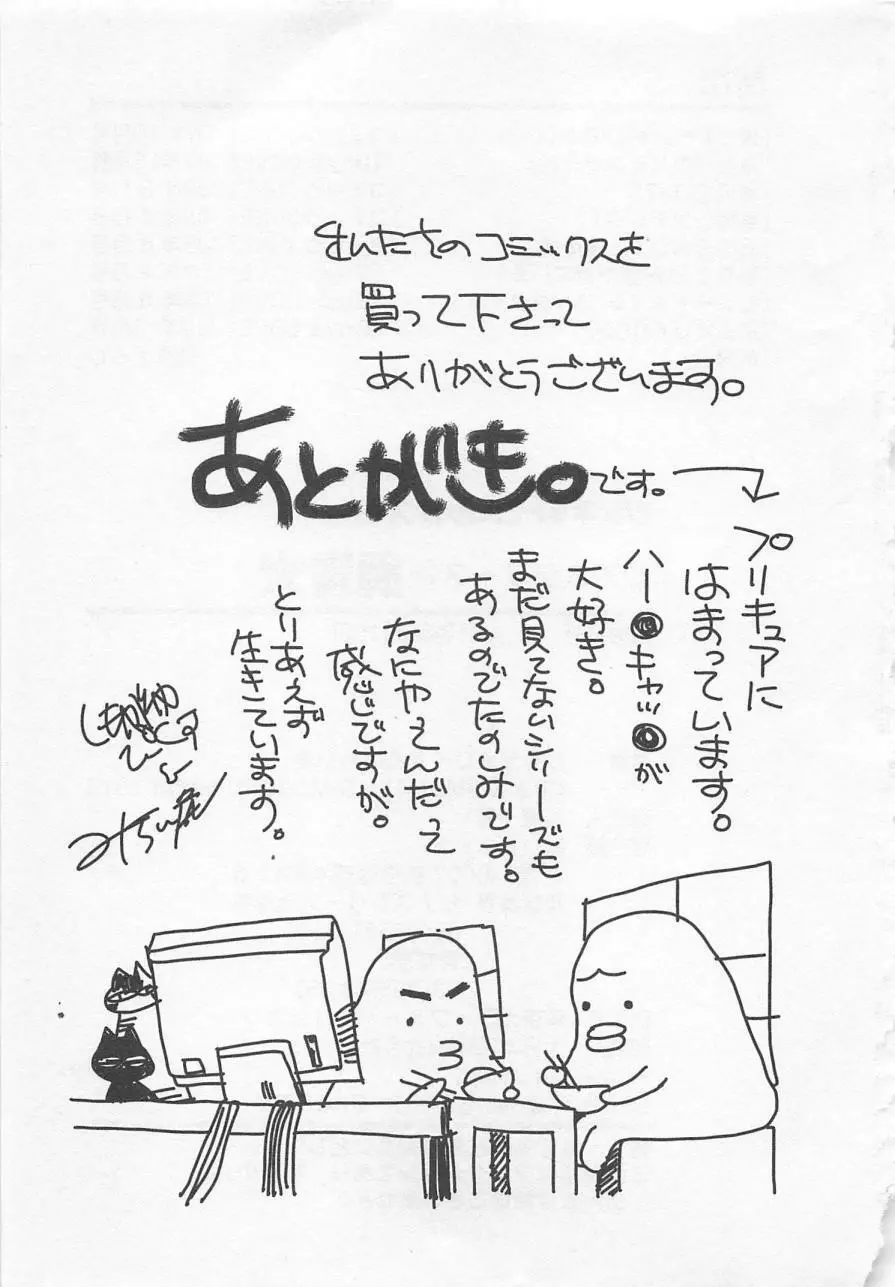 せんたさのコミックスを
買って下さって
ありがとうございます。
あとがき。です。
プリキュアに
はまっています。
ハー◎キャッ◎が
大好き。
まだ見てないシリーズも
あるのでたのしみです。
なにやってんだって
感じですが。
とりあえず
生きています。